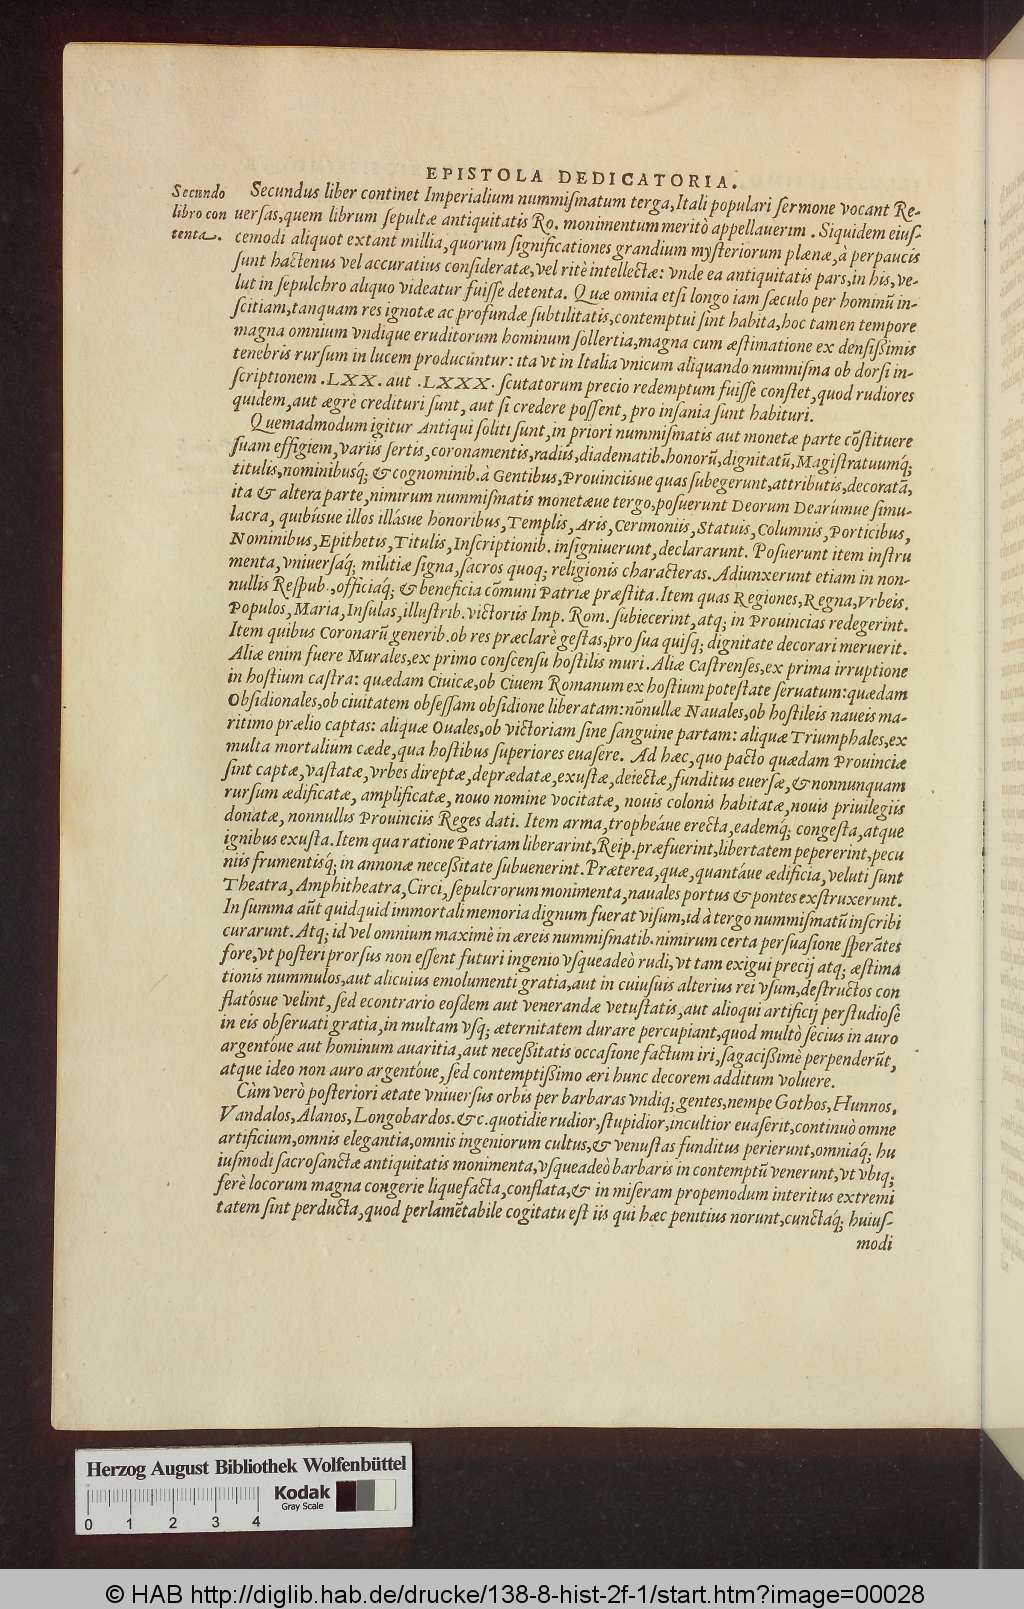 EPISTOLA DEDICATORIA.
Secundo
libro con
tenta.
Secundus liber continet Imperialium nummiſmatum terga, Itali populari ſermone vocant Re-
uerſas, quem librum ſepultæ antiquitatis Ro. monimentum meritò appellauerim. Siquidem eiuſ-
cemodi aliquot extant millia, quorum ſignificationes grandium myſteriorum plænæ, à perpaucis
ſunt hactenus vel accuratius conſideratæ, vel ritè intellectæ: vnde ea antiquitatis pars, in his, ve-
lut in ſepulchro aliquo videatur fuiſſe detenta. Quæ omnia etſi longo iam ſæculo per hominũ in-
ſcitiam, tanquam res ignotæ ac profundæ ſubtilitatis, contemptui ſint habita, hoc tamen tempore
magna omnium vndique eruditorum hominum ſollertia, magna cum æſtimatione ex denſißimis
tenebris rurſum in lucem producũntur: ita vt in Italia vnicum aliquando nummiſma ob dorſi in-
ſcriptionem .LXX. aut .LXXX. ſcutatorum precio redemptum fuiſſe conſtet, quod rudiores
quidem, aut ægrè credituri ſunt, aut ſi credere poſſent, pro inſania ſunt habituri.
Quemadmodum igitur Antiqui ſoliti ſunt, in priori nummiſmatis aut monetæ parte cõſtituere
ſuam effigiem, variis ſertis, coronamentis, radiis, diadematib. honorũ, dignitatũ, Magiſtratuumq́;
titulis, nominibusq́; & cognominib. à Gentibus, Prouinciisue quas ſubegerunt, attributis, decoratã,
ita & altera parte, nimirum nummiſmatis monetæue tergo, poſuerunt Deorum Dearumue ſimu-
lacra, quibúsue illos illásue honoribus, Templis, Aris, Cerimoniis, Statuis, Columnis, Porticibus,
Nominibus, Epithetis, Titulis, Inſcriptionib. inſigniuerunt, declararunt. Poſuerunt item inſtru
menta, vniuerſaq́; militiæ ſigna, ſacros quoq; religionis characteras. Adiunxerunt etiam in non-
nullis Reſpub., officiaq́; & beneficia cõmuni Patriæ præſtita. Item quas Regiones, Regna, Vrbeis,
Populos, Maria, Inſulas, illuſtrib. victoriis Imp. Rom. ſubiecerint, atq; in Prouincias redegerint.
Item quibus Coronarũ generib. ob res præclarè geſtas, pro ſua quiſq; dignitate decorari meruerit.
Aliæ enim fuere Murales, ex primo conſcenſu hoſtilis muri. Aliæ Caſtrenſes, ex prima irruptione
in hoſtium caſtra: quædam Ciuicæ, ob Ciuem Romanum ex hoſtium poteſtate ſeruatum: quædam
Obſidionales, ob ciuitatem obſeſſam obſidione liberatam: nõnullæ Nauales, ob hoſtileis naueis ma-
ritimo prælio captas: aliquæ Ouales, ob victoriam ſine ſanguine partam: aliquæ Triumphales, ex
multa mortalium cæde, qua hoſtibus ſuperiores euaſere. Ad hæc, quo pacto quædam Prouinciæ
ſint captæ, vaſtatæ, vrbes direptæ, deprædatæ, exuſtæ, deiectæ, funditus euerſæ, & nonnunquam
rurſum ædificatæ, amplificatæ, nouo nomine vocitatæ, nouis colonis habitatæ, nouis priuilegiis
donatæ, nonnullis Prouinciis Reges dati. Item arma, trophæáue erecta, eademq́; congeſta, atque
ignibus exuſta. Item qua ratione Patriam liberarint, Reip. præfuerint, libertatem pepererint, pecu
niis frumentisq́; in annonæ neceßitate ſubuenerint. Præterea, quæ, quantáue ædificia, veluti ſunt
Theatra, Amphitheatra, Circi, ſepulcrorum monimenta, nauales portus & pontes exſtruxerunt.
In ſumma aũt quidquid immortali memoria dignum fuerat viſum, id à tergo nummiſmatũ inſcribi
curarunt. Atq; id vel omnium maximè in æreis nummiſmatib. nimirum certa perſuaſione ſperãtes
fore, vt poſteri prorſus non eſſent futuri ingenio vſqueadeò rudi, vt tam exigui precij atq; æſtima
tionis nummulos, aut alicuius emolumenti gratia, aut in cuiuſuis alterius rei vſum, deſtructos con
flatósue velint, ſed econtrario eoſdem aut venerandæ vetuſtatis, aut alioqui artificij perſtudioſè
in eis obſeruati gratia, in multam vſq; æternitatem durare percupiant, quod multò ſecius in auro
argentóue aut hominum auaritia, aut neceßitatis occaſione factum iri, ſagacißimè perpenderũt,
atque ideo non auro argentóue, ſed contemptißimo æri hunc decorem additum voluere.
Cùm verò poſteriori ætate vniuerſus orbis per barbaras vndiq; gentes, nempe Gothos, Hunnos,
Vandalos, Alanos, Longobardos. &c. quotidie rudior, ſtupidior, incultior euaſerit, continuò omne
artificium, omnis elegantia, omnis ingeniorum cultus, & venuſtas funditus perierunt, omniaq́; hu
iuſmodi ſacroſanctæ antiquitatis monimenta, vſqueadeò barbaris in contemptũ venerunt, vt vbiq;
ferè locorum magna congerie liquefacta, conflata, & in miſeram propemodum interitus extremi
tatem ſint perducta, quod perlamẽtabile cogitatu eſt iis qui hæc penitius norunt, cunctaq́; huiuſ-
modi
Herzog August Bibliothek Wolfenbüttel
Kodak
Gray Scale
0 1 2 3 4
© HAB http://diglib.hab.de/drucke/138-8-hist-2f-1/start.htm?image=00028